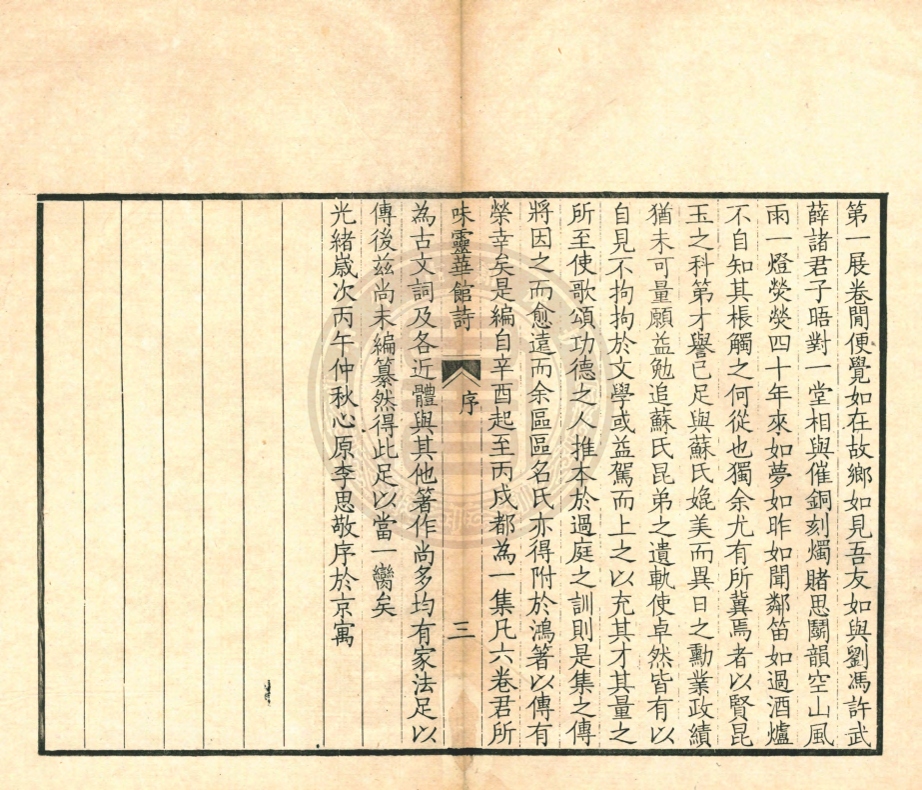 第一展卷閒便覺如在故鄉如見吾友如與劉馮許武
薛諸君子晤對一堂相與催銅刻燭賭思鬬韻空山風
雨一燈熒熒四十年來如夢如昨如聞鄰笛如過酒爐
不自知其棖觸之何從也獨余尤有所冀焉者以賢昆
玉之科第才譽已足與蘇氏媲美而異日之勳業政績
猶未可量願益勉追蘇氏昆弟之遺軌使卓然皆有以
自見不拘拘於文學或益駕而上之以充其才其量之
所至使歌頌功德之人推本於過庭之訓則是集之傳
將因之而愈遠而余區區名氏亦得附於鴻著以傳有
榮幸矣是編自辛酉起至丙戌都為一集凡六卷君所
味靈華館詩 序 三
為古文詞及各近體與其他著作尚多均有家法足以
傳後茲尚未編纂然得此足以當一臠矣
光緒嵗次丙午仲秋心原李思敬序於京寓